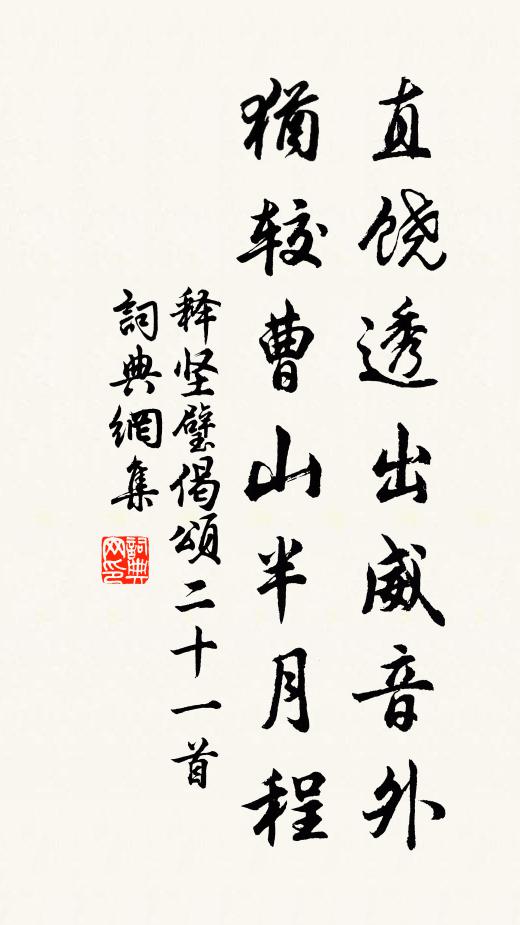 直饶透出威音外
犹较曹山半月程
释坚璧偈颂二十一首
詞典網集
詞典网印